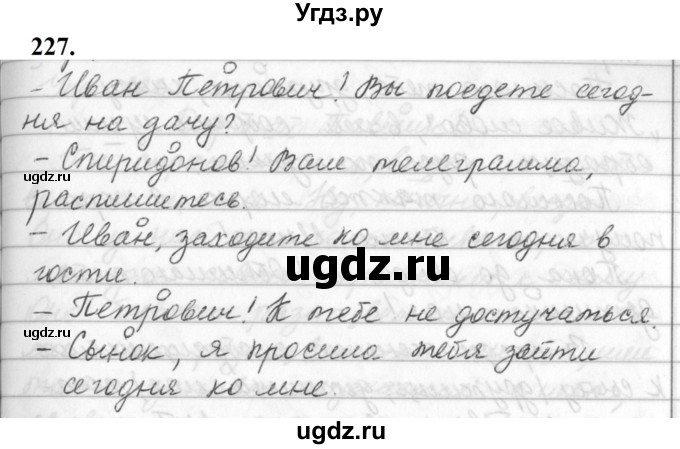 Угдз.ру
227.
- Иван Петрович! Вы поедете сегод-
ня на дачу?
- Спиридонов! Вам телеграмма,
угдз.ru
распишитесь.
- Иван, заходите ко мне сегодня в
гости.
ugdz.ru
- Петрович! К тебе не достучаться.
угдз.ru
- Сынок, я просила тебя зайти
сегодня ко мне.
ugdz.ru